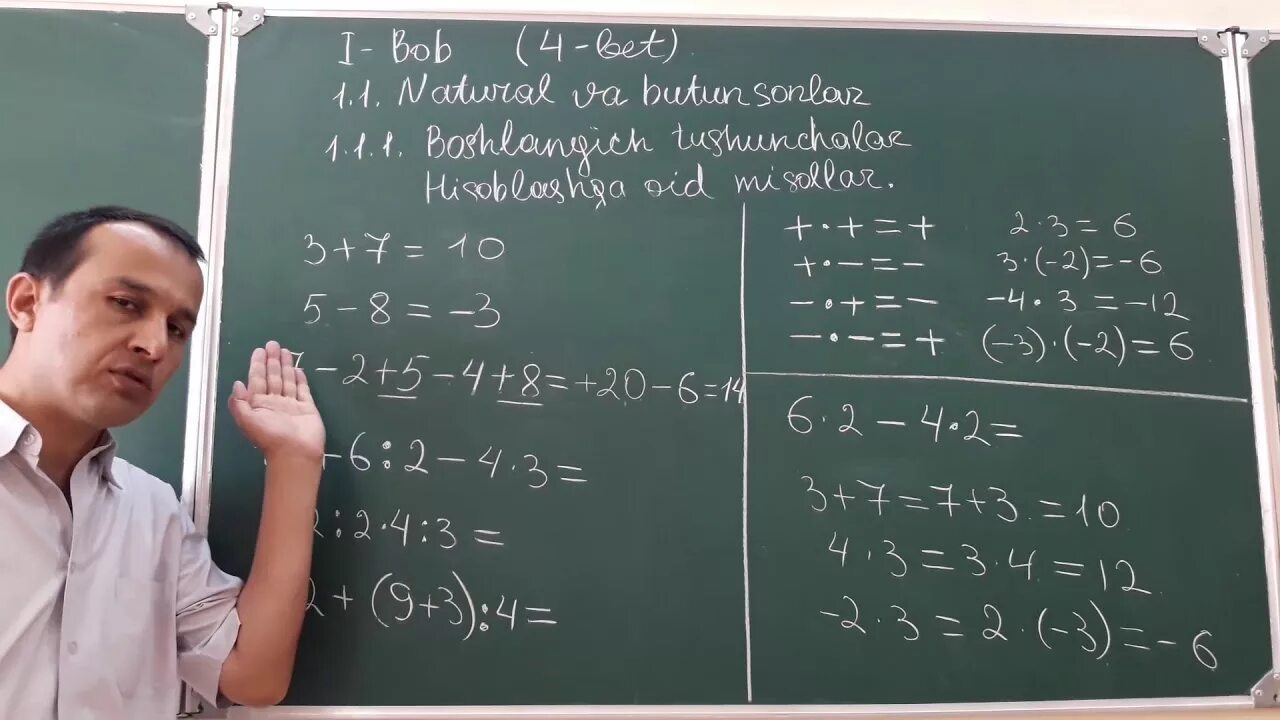 I- Bob (4-bet).
1.1. Natural va butun sonlar
1.1.1. Boshlangich tushunchalar
Hisoblashga oid misollar.
3+7=10
5-8=-3
7-2+5-4+8=+20-6=14
+6:2-4·3=
2:2·4:3=
2+(9+3):4=
+·+=+ 2·3=6
+·-=- 3·(-2)=-6
-·+=- -4·3=-12
-·-=+ (-3)·(-2)=6
6·2-4·2=
3+7=7+3=10
4·3=3·4=12
-2·3=2·(-3)=-6